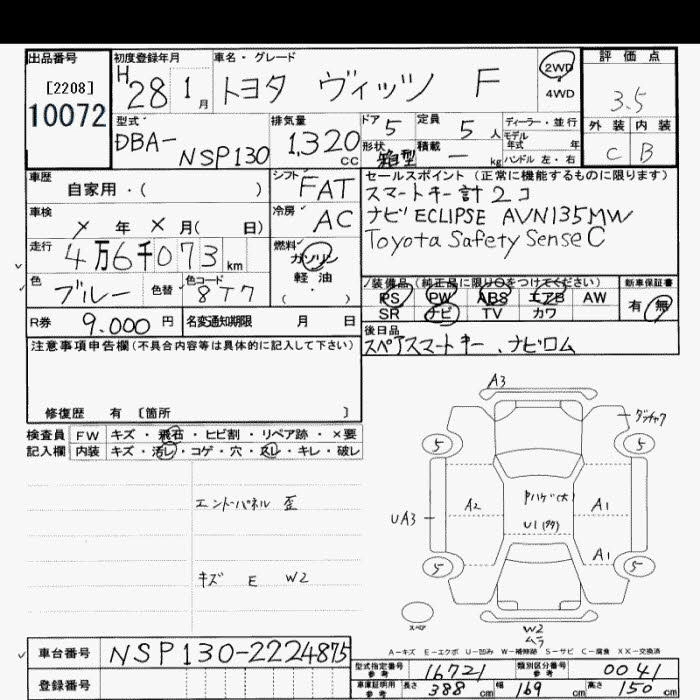 出品番号
[2208]
10072
初度登録年月
H 28 1月
車名・グレード
トヨタ ヴィッツ F
2WD
4WD
評価点
3.5
外装 内装
C B
型式
DBA-
NSP130
排気量
1,320
cc
ドア 5
定員 5 人
形状 箱型
積載 — kg
ディーラー・並行
モデル
年式 年
ハンドル 左・右
車歴
自家用・( )
シフト
FAT
車検
× 年 × 月( 日)
冷房
AC
走行
4万6千073 km
燃料
ガソリン
軽油
( ・ )
色
ブルー
色替
色コード
8T7
R券 9.000 円
名変通知期限 月 日
セールスポイント (正常に機能するものに限ります)
スマートキー計2コ
ナビECLIPSE AVN135MW
Toyota Safety Sense C
装備品(純正品に限り○をつけてください)
PS PW ABS エアB AW
SR ナビ TV カワ
新車保証書
有 無
後日品
スペアスマートキー、ナビロム
注意事項申告欄(不具合内容等は具体的に記入して下さい)
修復歴 有 〔箇所 〕
検査員
記入欄
FW キズ・飛石・ヒビ割・リペア跡・×要
内装 キズ・汚レ・コゲ・穴・スレ・キレ・破レ
エンドパネル 歪
キズ E W2
A3
5
5
UA3
A2
ハゲ(大)
U1
A1
A1
5
5
スペア
W2
ムラ
A-キズ E-エクボ U-凹み W-補修跡 S-サビ C-腐食 XX-交換済
車台番号 NSP130-2224875
登録番号
型式指定番号
参考
16721
類別区分番号
参考
0041
車庫証明用
参考
長さ 388 cm 幅 169 cm 高さ 150 cm